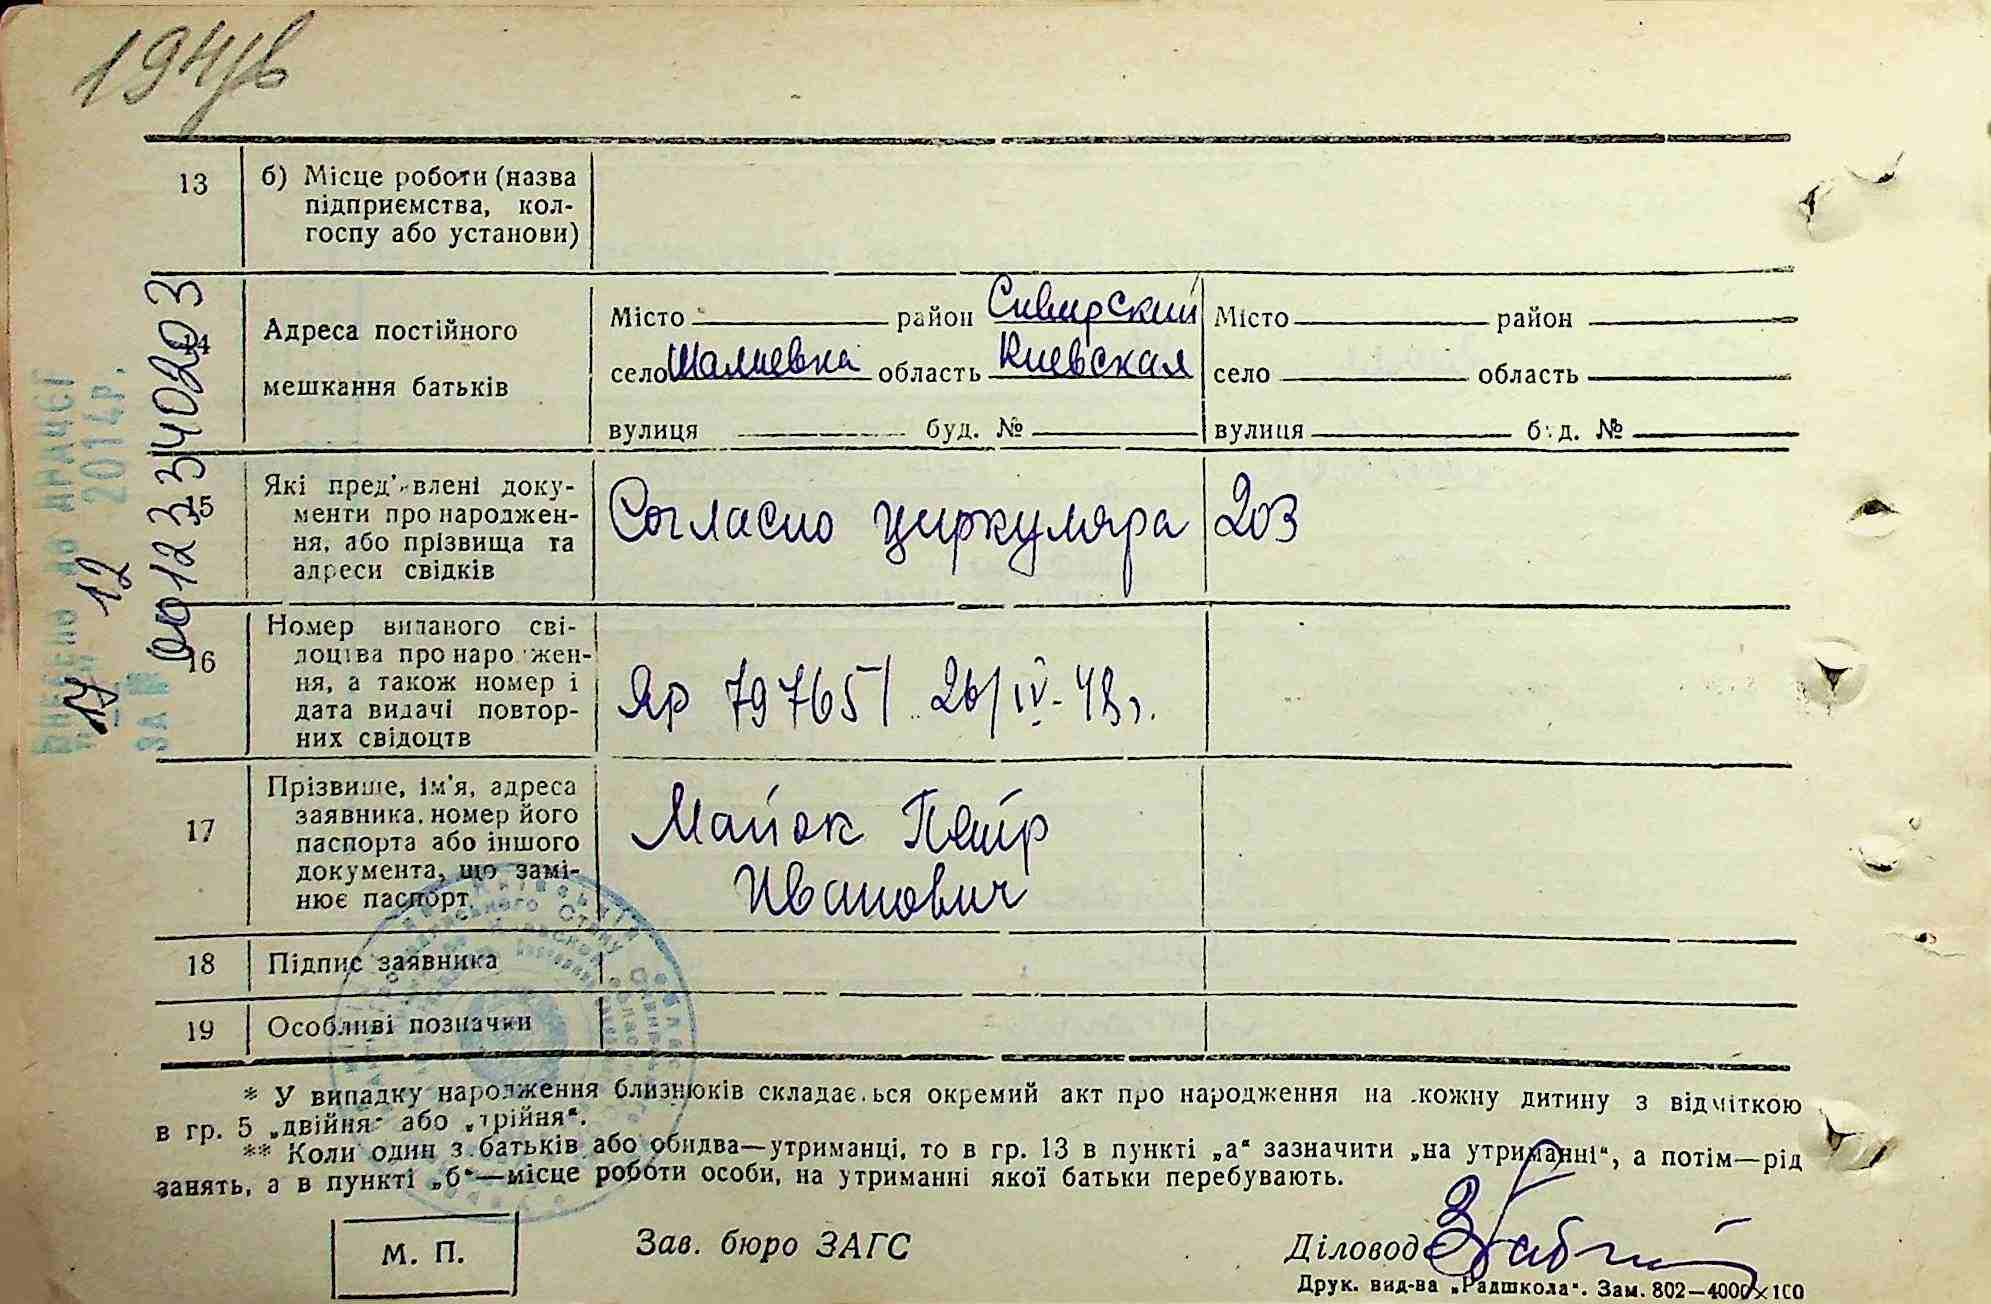 13 б) Місце роботи (назва
підприємства, кол-
госпу або установи)
Адреса постійного
мешкання батьків
Місто район Сивирский Місто район
село Шалиевка область Киевская село область
вулиця буд. № вулиця буд. №
15 Які пред'явлені доку-
менти про народжен-
ня, або прізвища та
адреси свідків
Согласно циркуляра 203
16 Номер виданого сві-
доцтва про народжен-
ня, а також номер і
дата видачі повтор-
них свідоцтв
Яр 797651 26/IV-48г.
17 Прізвище, ім'я, адреса
заявника, номер його
паспорта або іншого
документа, що замі-
нює паспорт.
Майок Петр
Иванович
18 Підпис заявника
19 Особливі позначки
* У випадку народження близнюків складається окремий акт про народження на кожну дитину з відміткою
в гр. 5 „двійня“ або „трійня“.
** Коли один з батьків або обидва—утриманці, то в гр. 13 в пункті „а“ зазначити „на утриманні“, а потім—рід
занять, а в пункті „б“—місце роботи особи, на утриманні якої батьки перебувають.
М. П.
Зав. бюро ЗАГС
Діловод
Друк. вид-ва „Радшкола“. Зам. 802—4000×100
2014р.
17 12
00123340203